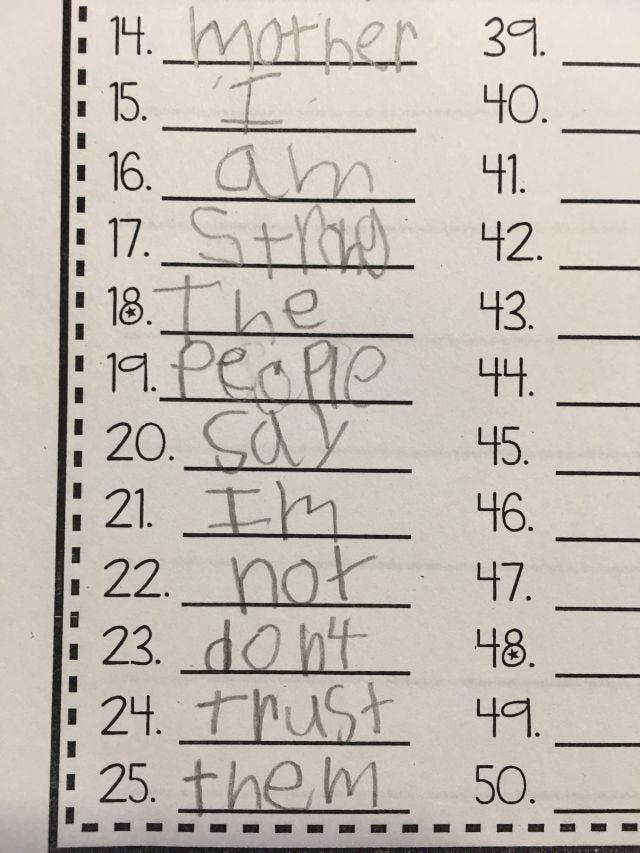 14. mother 39.
15. I 40.
16. am 41.
17. Strong 42.
18. The 43.
19. PeoPle 44.
20. say 45.
21. Im 46.
22. not 47.
23. don't 48.
24. trust 49.
25. them 50.